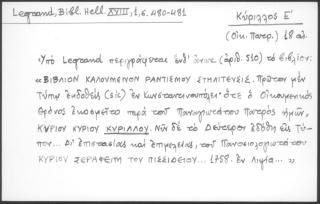 Legrand, Bibl. Hell. XVIII, 1, σ. 480-481
Κύριλλος Ε΄
(Οἰκ. Πατρ.) 18 αἰ.
Ὑπὸ Legrand περιγράφεται (ἀριθ. 510) τὸ βιβλίον:
«ΒΙΒΛΙΟΝ ΚΑΛΟΥΜΕΝΟΝ ΡΑΝΤΙΣΜΟΥ ΣΤΗΛΙΤΕΥΣΙΣ. Πρῶτον μὲν
Τύπῳ ἐκδοθεῖς (sic) ἐν Κωνσταντινουπόλει ὅτε ὁ Οἰκουμενικὸς
Θρόνος ἐκοσμεῖτο παρὰ τοῦ Παναγιωτάτου Πατρὸς ἡμῶν,
ΚΥΡΙΟΥ ΚΥΡΙΟΥ ΚΥΡΙΛΛΟΥ. Νῦν δὲ τὸ Δεύτερον ἐδόθη εἰς Τύ-
πον... Δι' ἐπιστασίας καὶ ἐπιμελείας, τοῦ Πανοσιολογιωτάτου
ΚΥΡΙΟΥ ΣΕΡΑΦΕΙΜ ΤΟΥ ΠΙΣΣΙΔΕΙΟΥ... 1758. ἐν Λιψίᾳ... »